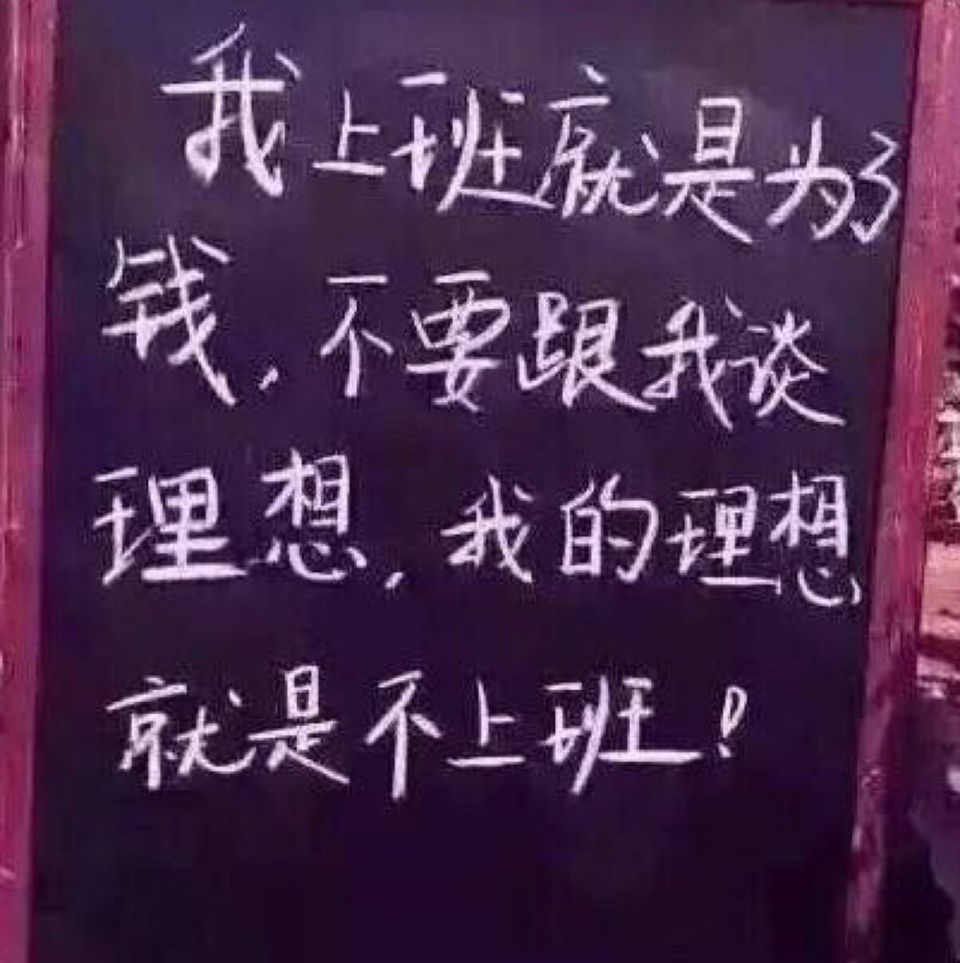 我上班就是为了
钱,不要跟我谈
理想,我的理想
就是不上班!